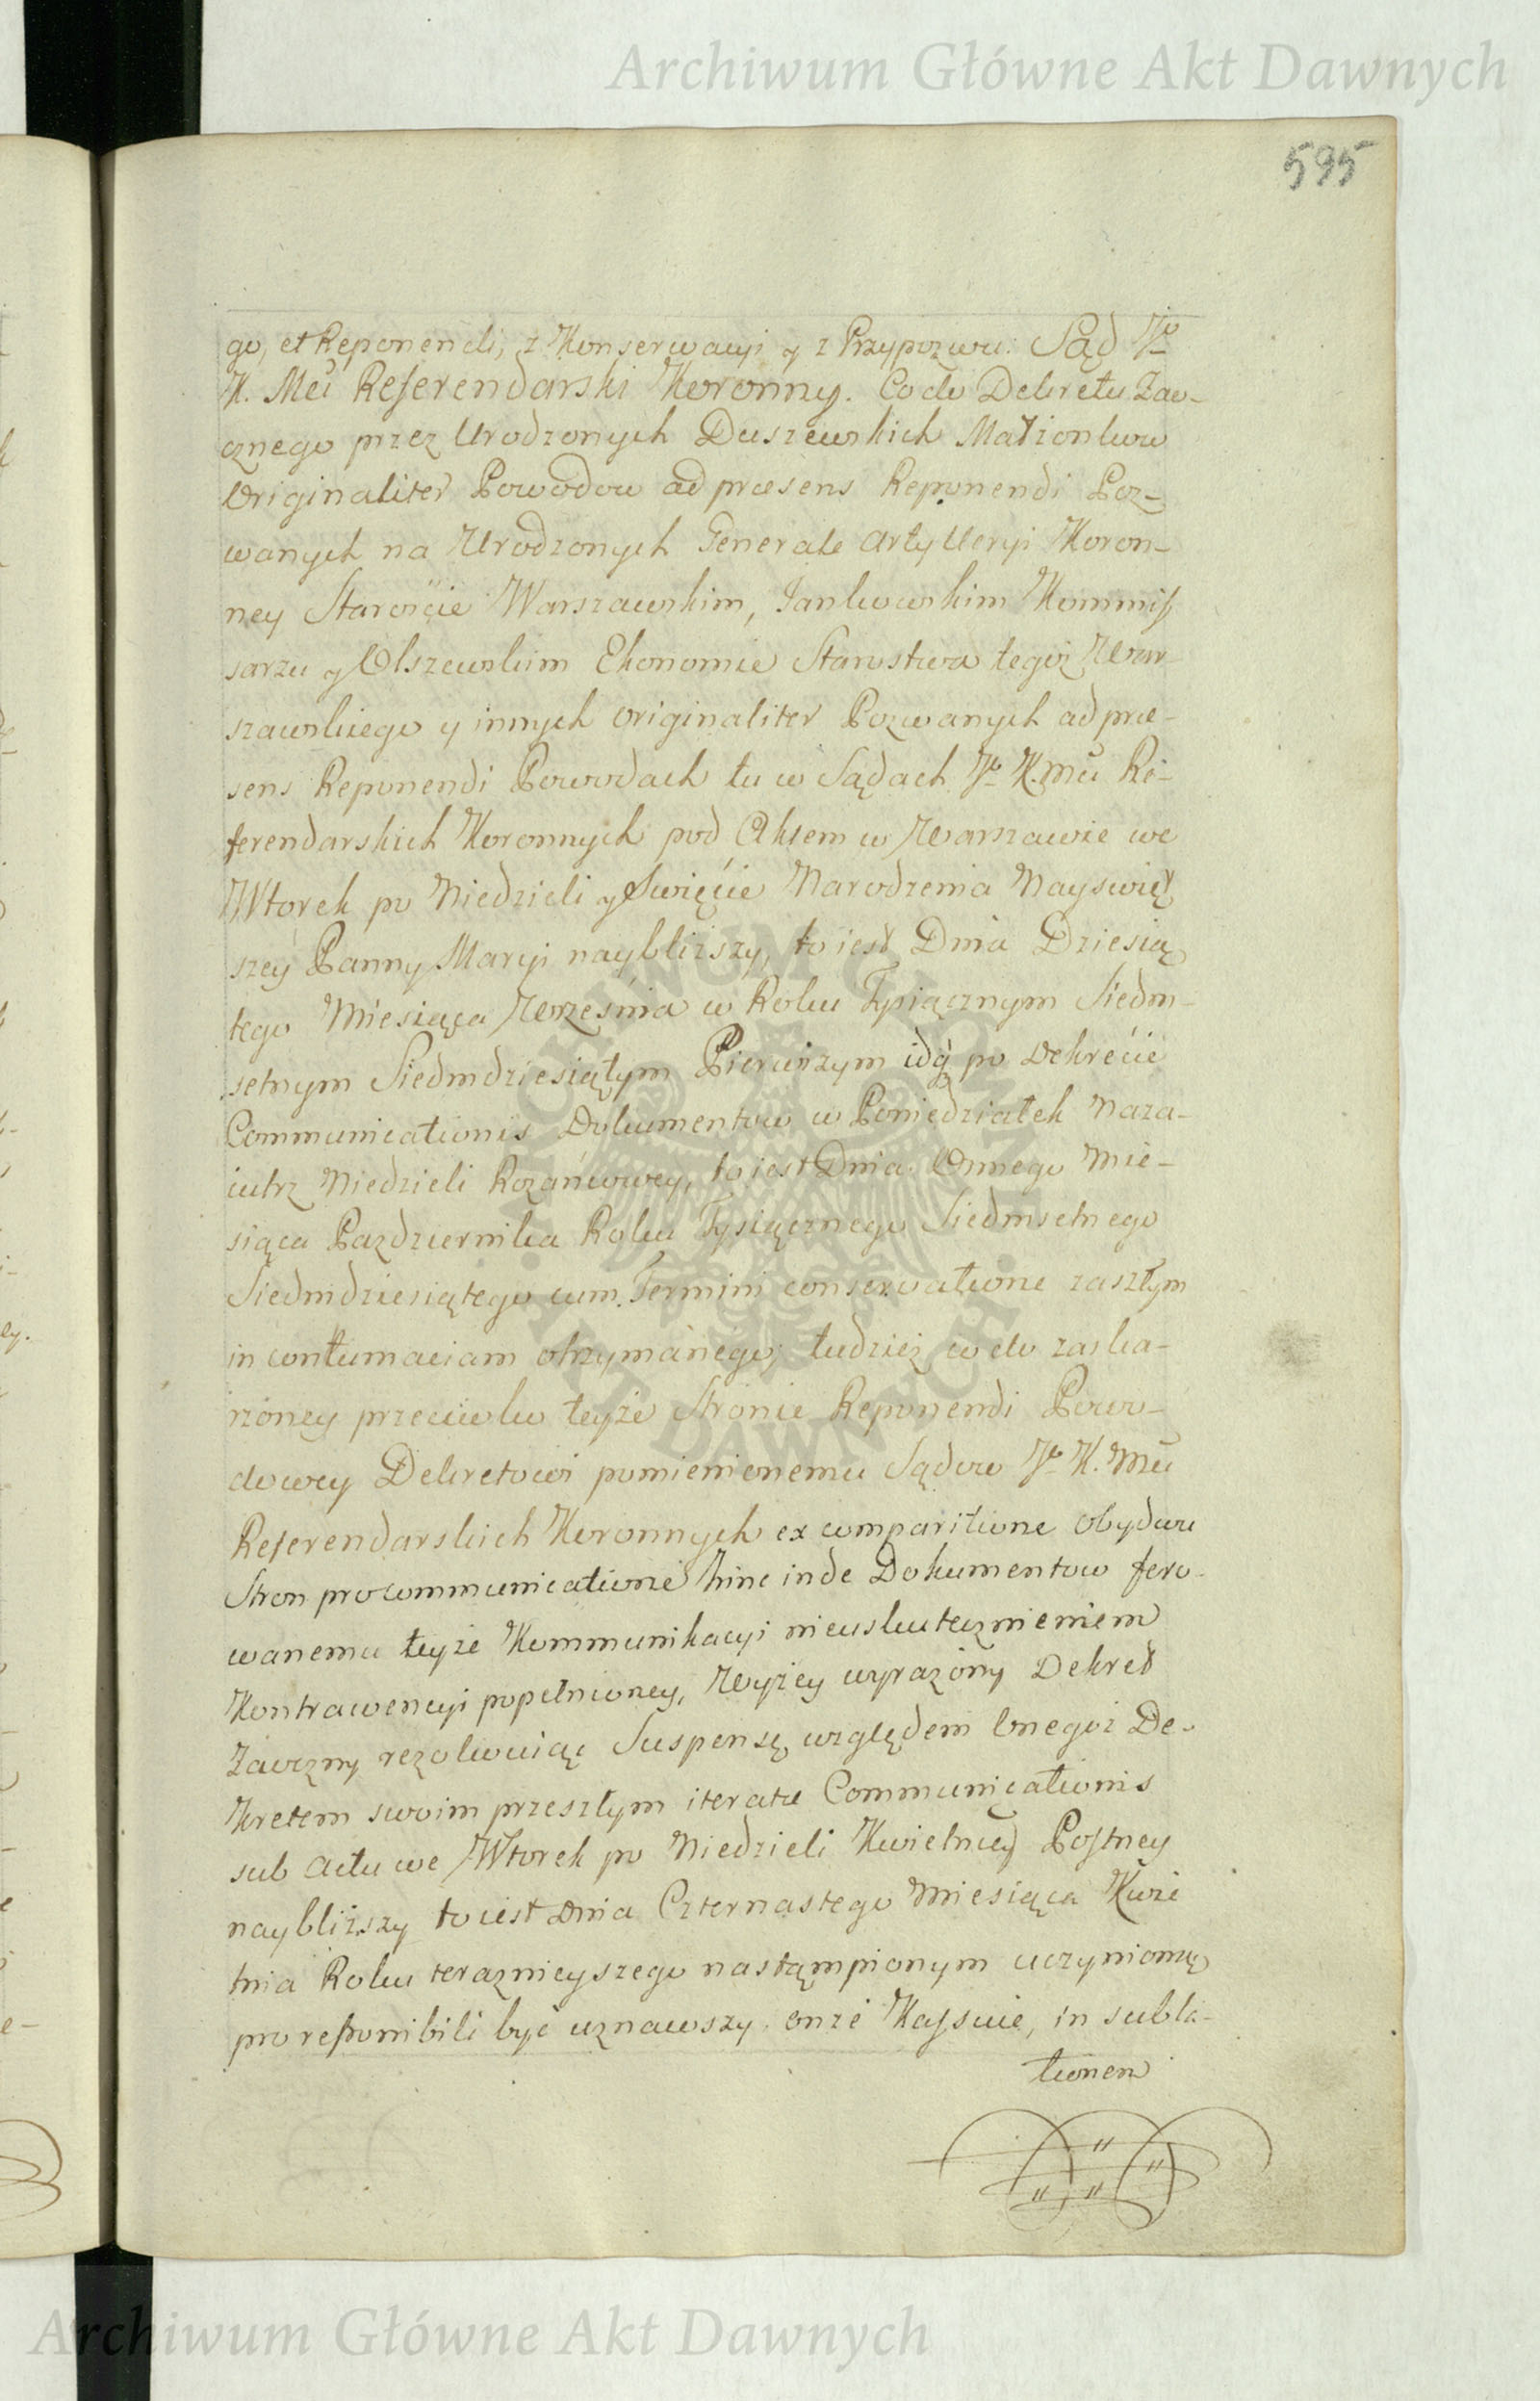 Archiwum Główne Akt Dawnych
595
go, et Reponendi, z Konserwacyi y z Przypozwu. Sąd Jo
K. Mci Referendarski Koronny. Co do Dekretu Zao-
cznego przez Urodzonych Duszewskich Małżonkow
Originaliter Powodow ad præsens Reponendi Poz-
wanych na Urodzonych Generale Artylleryi Koron-
ney Staroście Warszawskim, Jankowskim Kommis
sarzu y Olszewskim Ekonomie Starostwa tegoż War-
szawskiego y innych Originaliter Pozwanych ad præ-
sens Reponendi Powodach tu w Sądach Jo K. Mci Re-
ferendarskich Koronnych pod Aktem w Warszawie we
Wtorek po Niedzieli y Swięcie Narodzenia Nayswięt
szey Panny Maryi naybliższy, to iest Dnia Dziesią
tego Miesiąca Września w Roku Tysiącznym Siedm-
setnym Siedmdziesiątym Pierwszym idq; po Dekrecie
Communicationis Dokumentow w Poniedziałek Naza-
iutrz Niedzieli Rożańcowey, to iest Dnia Osmego Mie-
siąca Pazdziernika Roku Tysiącznego Siedmsetnego
Siedmdziesiątego cum Termini conservatione zaszłym
in contumaciam otrzymanego; tudzież co do zaska-
rżoney przeciwko teyże Stronie Reponendi Powo-
dowey Dekretowi pomienionemu Sądow Jo K. Mci
Referendarskich Koronnych ex comparitione obydwu
Stron pro communicatione hinc inde Dokumentow fero-
wanemu teyże Kommunikacyi nieuskutecznieniem
Kontrawencyi popełnioney, Wyżey wyrażony Dekret
Zaoczny rezolwuiąc Suspensę względem Onegoż De-
kretem swoim przeszłym iteratæ Communicationis
sub Actu we Wtorek po Niedzieli Kwietney Postney
naybliższy to iest Dnia Czternastego Miesiąca Kwie
tnia Roku teraznieyszego nastąmpionym uczynioną
pro reponibili być uznawszy onże Kassuie, in subla-
tionem
Archiwum Główne Akt Dawnych